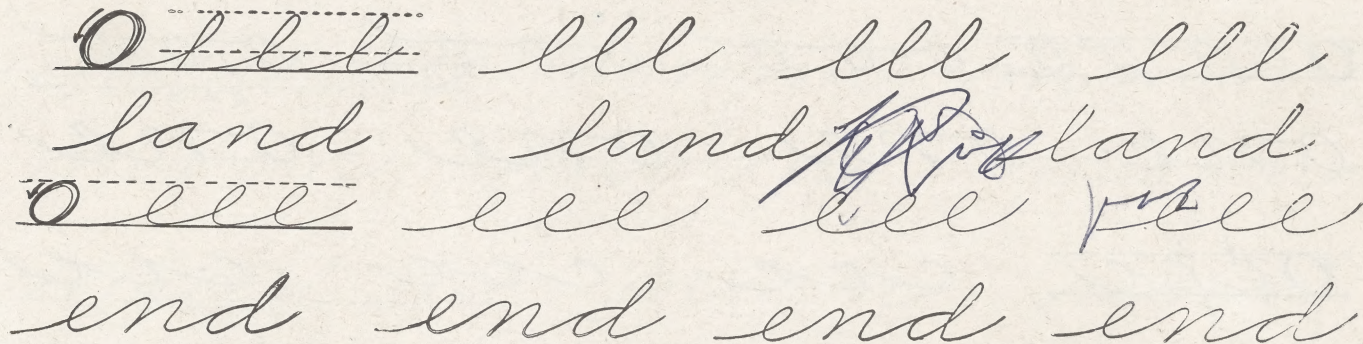 lll lll lll lll
land land land
eee eee eee eee
end end end end